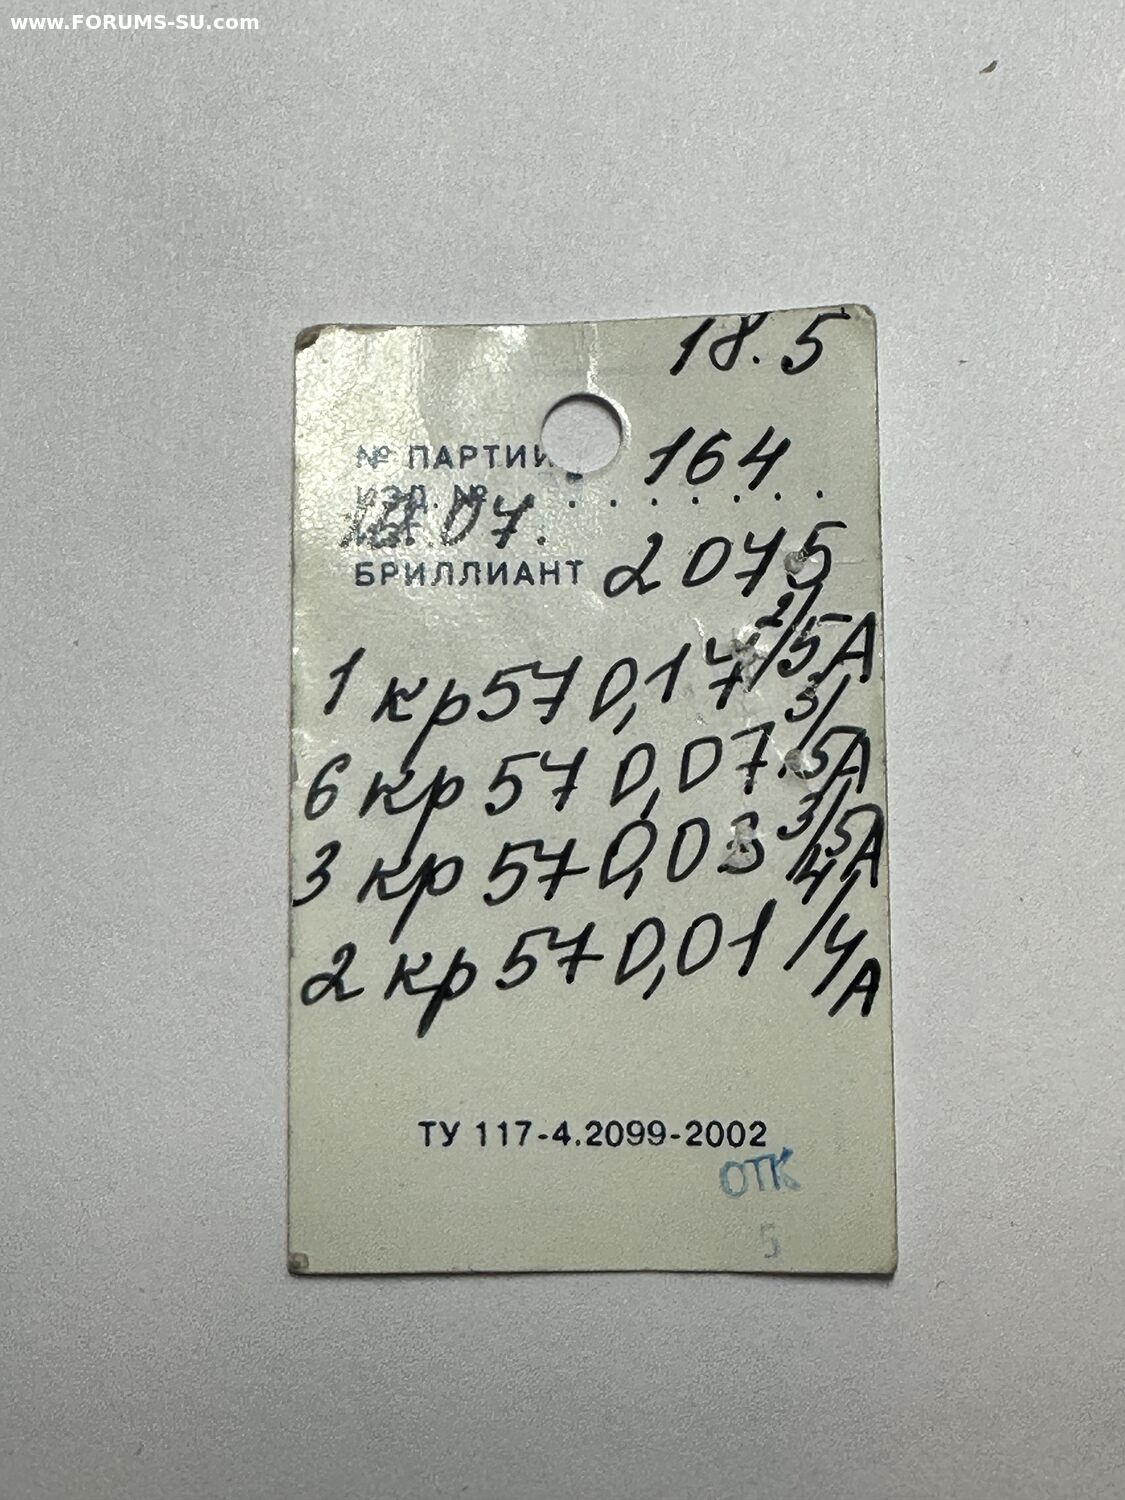 www.FORUMS-SU.com
18.5
№ ПАРТИИ 164
ИЗД. № . . . . . . .
07.
БРИЛЛИАНТ 2075
1 кр57 0,17 2/5А
6 кр 57 0,07 3/5А
3 кр 57 0,03 3/5А
2 кр 57 0,01 4/4А
ТУ 117-4.2099-2002
ОТК
5